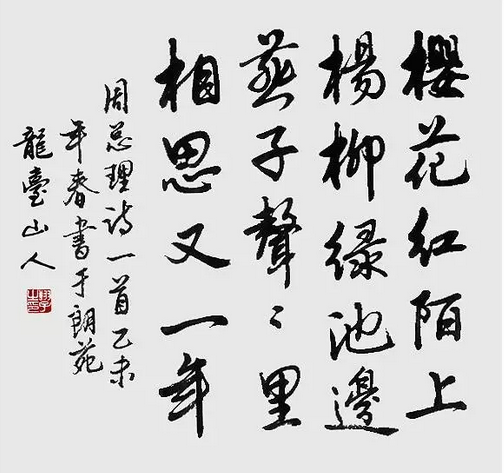 櫻花红陌上
楊柳绿池邊
燕子聲〻里
相思又一年
周总理诗一首乙未
年春書于朗苑
龍臺山人